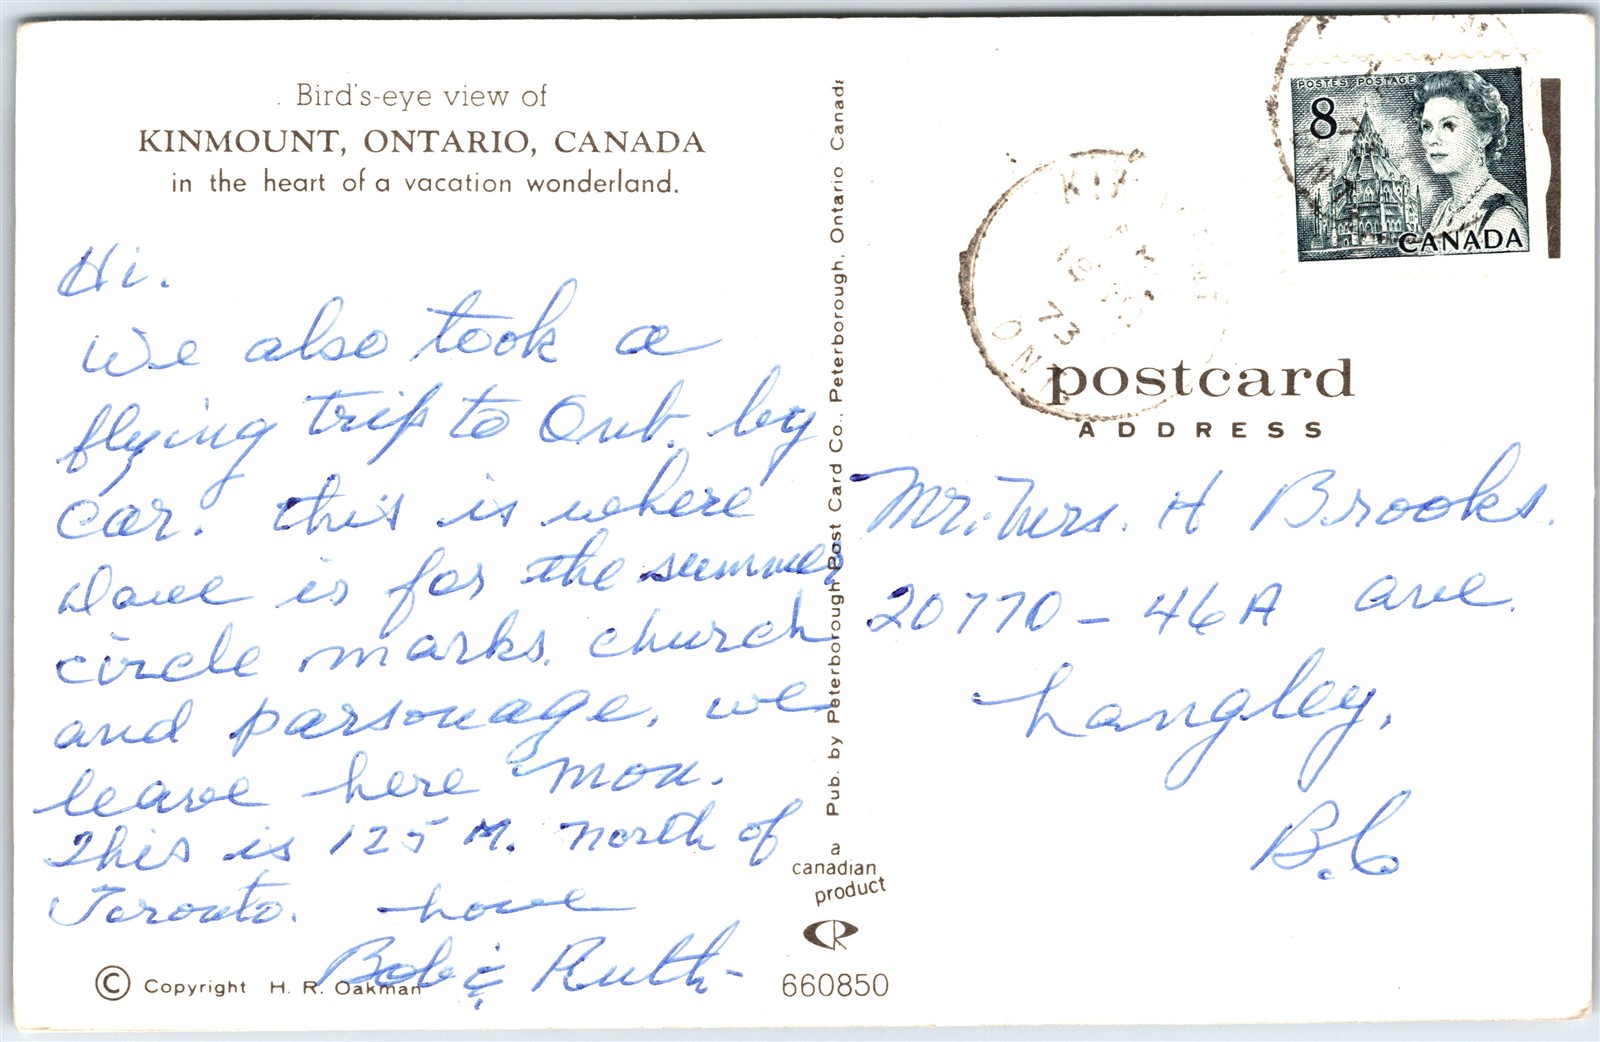 Bird's-eye view of
KINMOUNT, ONTARIO, CANADA
in the heart of a vacation wonderland.
Hi.
We also took a
flying trip to Ont. by
car. this is where
Dave is for the summer
circle marks church
and parsonage. we
leave here Mon.
This is 125 M. North of
Toronto. Love
Bob & Ruth-
© Copyright H. R. Oakman
Pub. by Peterborough Post Card Co., Peterborough, Ontario, Canada
a
canadian
product
CR
660850
POSTES POSTAGE
8
CANADA
73
ONT
postcard
ADDRESS
Mr. Mrs. H Brooks.
20770 - 46A ave.
Langley,
B.C